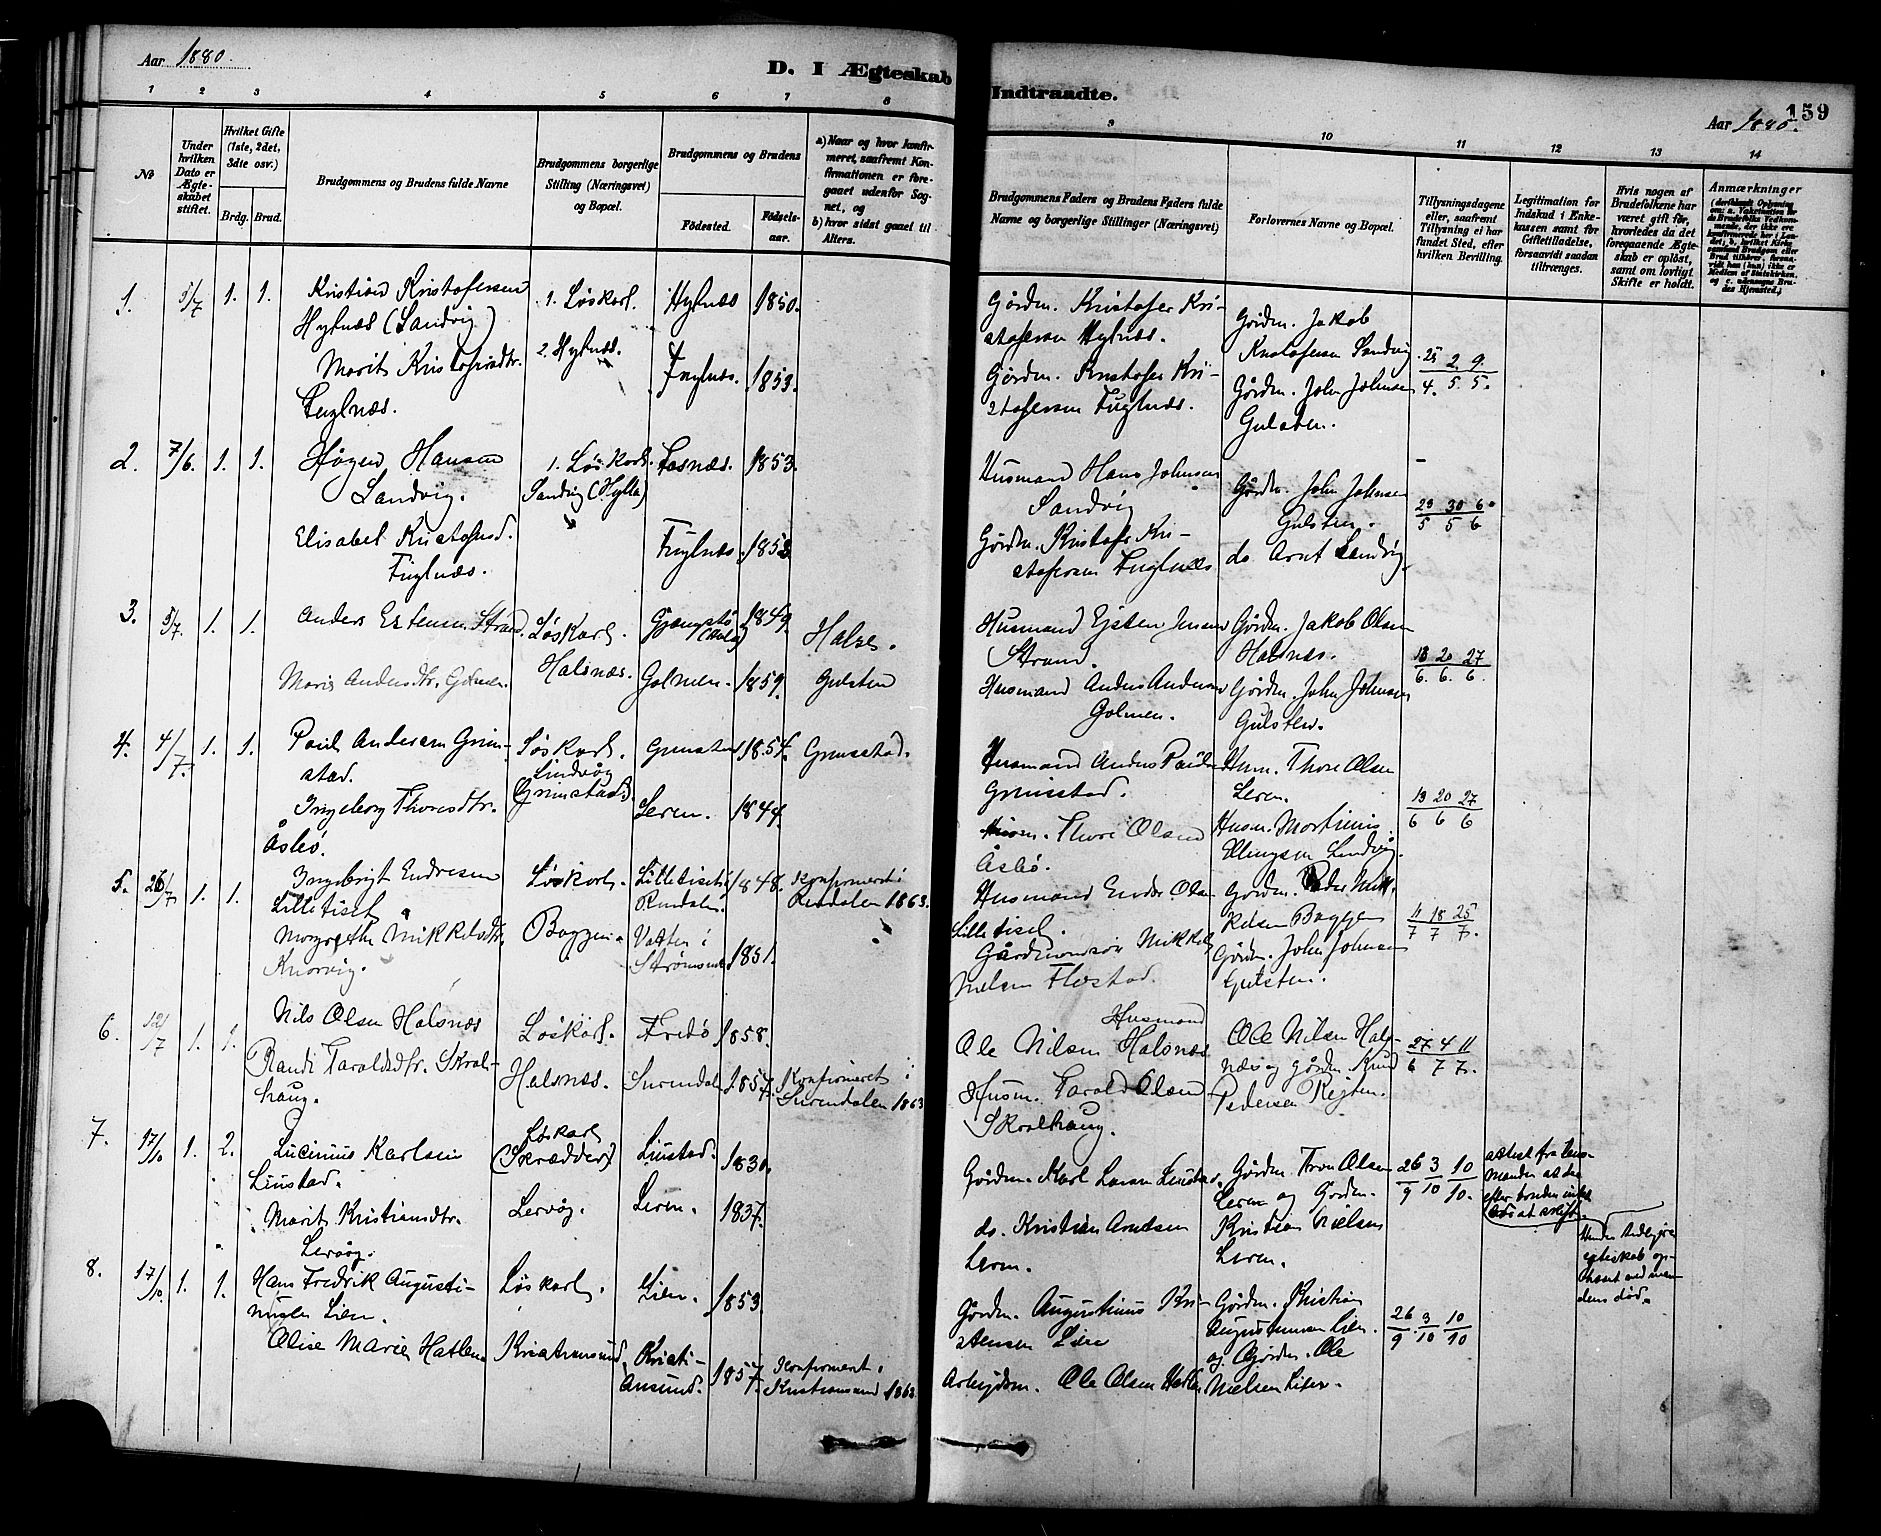 Aar 1880.
D. I Ægteskab
Indtraadte.
Aar 1880.
159
1 2 3 4 5 6 7 8
9 10 11 12 13 14
No
Under hvilken Dato er Ægteskabet stiftet.
Hvilket Gifte (1ste, 2det, 3die osv.)
Brdg. Brud.
Brudgommens og Brudens fulde Navne
Brudgommens borgerlige Stilling (Næringsvei) og Bopæl.
Brudgommens og Brudens
Fødested.
Fødselsaar.
a) Naar og hvor konfirmeret, saafremt Konfirmationen er foregaaet udenfor Sognet, og
b) hvor sidst gaaet til Alters.
Brudgommens Faders og Brudens Faders fulde Navne og borgerlige Stillinger (Næringsvei)
Forlovernes Navne og Bopæl.
Tillysningsdagene eller, saafremt Tillysning ei har fundet Sted, efter hvilken Bevilling.
Legitimation for Indskud i Enkekassen samt for Giftetilladelse, forsaavidt saadan tiltrænges.
Hvis nogen af Brudefolkene har været gift før, hvorledes da det foregaaende Ægteskab er opløst, samt om lovligt Skifte er holdt.
Anmærkninger
1. 5/7 1. 1.
Kristian Kristofersen
Hylnæs (Sandvig)
Marit Kristofersdtr.
Fuglnæs.
1. Løskarl.
2. Hylnæs.
Hylnæs 1850.
Fuglnæs. 1853.
Gårdm. Kristofer Kri-
stofersen Hylnæs.
Gårdm. Kristofer Kri-
stofersen Fuglnæs.
Gårdm. Jakob
Kristofersen Sandvig
Gårdm. John Johnsen
Gulsten.
25 2 9
4. 5. 5.
2. 7/6. 1. 1.
Hågen Hansen
Sandvig.
Elisabet Kristofersd.
Fuglnæs.
1. Løskarl.
Sandvig (Hylla)
Fosnæs. 1853.
Fuglnæs.
Husmand Hans Johnsen
Sandvig
Gårdm. Kristofer Kri-
stofersen Fuglnæs
Gårdm. John Johnsen
Gulsten.
do Arnt Sandvig.
23 30 6
5 5 6
3. 5/7. 1. 1.
Anders Estensen Strand.
Marit Andersdtr. Golmen.
Løskarl.
Halsnæs.
1849.
Golmen. 1859.
Halse.
Gulsten
Husmand Ejsten Jensen
Strand.
Husmand Anders Andersen
Golmen.
Gårdm. Jakob Olsen
Halsnæs.
Gårdm. John Johnsen
Gulsten.
13 20 27
6. 6. 6.
4. 4/7. 1. 1.
Paul Andersen Grim-
stad.
Ingeborg Thoresdtr.
Åsbø.
Løskarl.
Lindvåg
Grimstad.
Grimstad 1854.
Leren. 1844.
Grimstad.
Husmand Anders Paulsen
Grimstad.
Husm. Thore Olsen
Åsbø.
Husm. Thore Olsen
Leren.
Husm. Mortinus
Ellingsen Lindvåg.
13 20 27
6 6 6
5. 26/7 1. 1.
Ingebrigt Endresen
Lilletiset
Margrethe Mikkelsdtr.
Knarvig.
Løskarl.
Baggen.
Lilletiset i
Rindalen. 1848.
Vatten i
Strømsund 1851.
Konfirmert i
Rindalen 1863.
Husmand Ender Olsen
Lilletiset.
Gårdmandssøn Mikkel
Nielsen Flæstad.
Gårdm. Peder Mik-
kelsen Baggen
Gårdm. John Johnsen
Gulsten.
11 18 25
7 7 7.
6. 12/7 1. 1.
Nils Olsen Halsnæs
Randi Taraldsdtr. Skral-
haug.
Løskarl.
Halsnæs.
Fredø 1858.
Surendal 1857.
Konfirmeret i
Surendalen 1863
Husmand
Ole Nilsen Halsnæs.
Husm. Tarald Olsen
Skralhaug.
Ole Nilsen Hals-
næs og gårdm. Knud
Pedersen Rejten.
27 4 11
6 7 7.
7. 17/10 1. 2.
Lucinius Karlsen
Liustad.
Marit Kristiansdtr.
Lervåg.
Løskarl
(Skrædder)
Lervåg.
Liustad. 1830.
Leren. 1837.
Gårdm. Karl Larsen Liustad.
do. Kristian Arntsen
Leren.
Gårdm. Tron Olsen
Leren og Gårdm.
Kristian Nielsen
Leren.
26 3 10
9 10 10.
attest fra lens-
manden at der
efter manden intet
var at skifte.
Hendes tidligere
egteskab op-
hævet ved man-
dens død.
8. 17/10. 1. 1.
Hans Fredrik Augusti-
nusen Lien.
Elise Marie Hatlen
Løskarl.
Kristiansund.
Lien. 1853
Kristi-
ansund. 1857.
Konfirmeret i
Kristiansund
Gårdm. Augustinus Kri-
stensen Lien
Arbejdsm. Ole Olsen Hatlen
Gårdm. Kristian
Augustinusen Lien.
og Gårdm. Ole
Nielsen Lien.
26 3 10
9 10 10